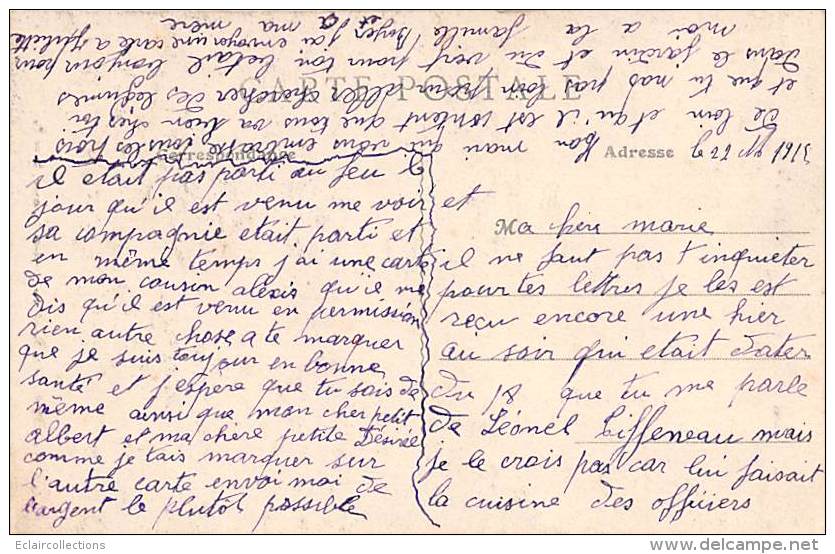 CARTE POSTALE
Correspondance
Adresse
le 22 1915
Ma chère marie
il ne faut pas t inquieter
pour tes lettres je les est
reçu encore une hier
au soir qui etait dater
du 18 que tu me parle
de Léonel Tiffeneau mais
je le crois pas car lui faisait
la cuisine des officiers
et
il etait pas parti au feu le
jour qu'il est venu me voir
sa compagnie etait parti et
en même temps j'ai une carte
de mon cousin alexis qu'il me
dis qu'il est venu en permission
rien autre chose a te marquer
que je suis toujour en bonne
santé et j'espere que tu sois de
même ainsi que mon cher petit
albert et ma chère petite Désirée
comme je tais marquer sur
l'autre carte envoi moi de
l'argent le plutôt possible
mari qui vous embrasse tous les trois
de loin et qu'il est content que tous va bien chez toi
et que tu nas pas loin pour aller chercher des legumes
dans le jardin et du vert pour ton betail bonjour pour
moi a la famille j'ai envoyer une carte a Juliette
et a ma mère
Eclaircollections
http://eclaircollections.delcampe.net